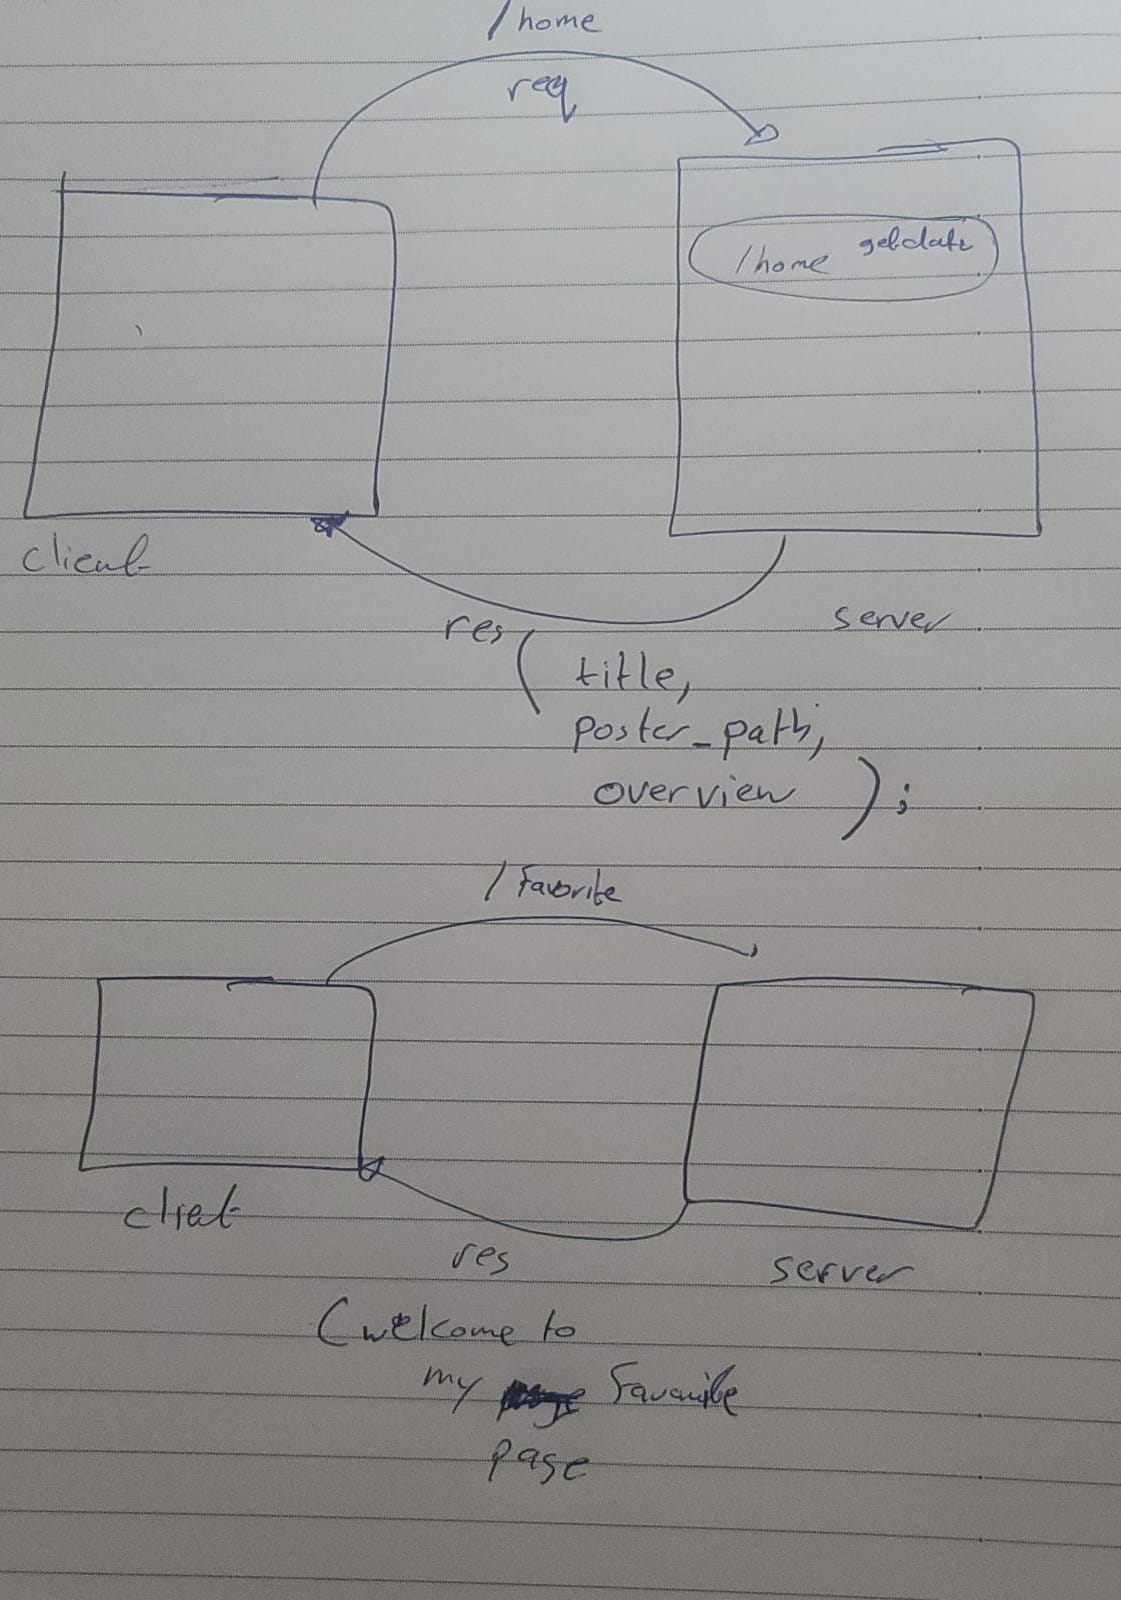 /home
req
/home getdata
client
server
res ( title,
poster_path,
overview );
/Favorite
cliet
server
res
(welcome to
my Favorite
page